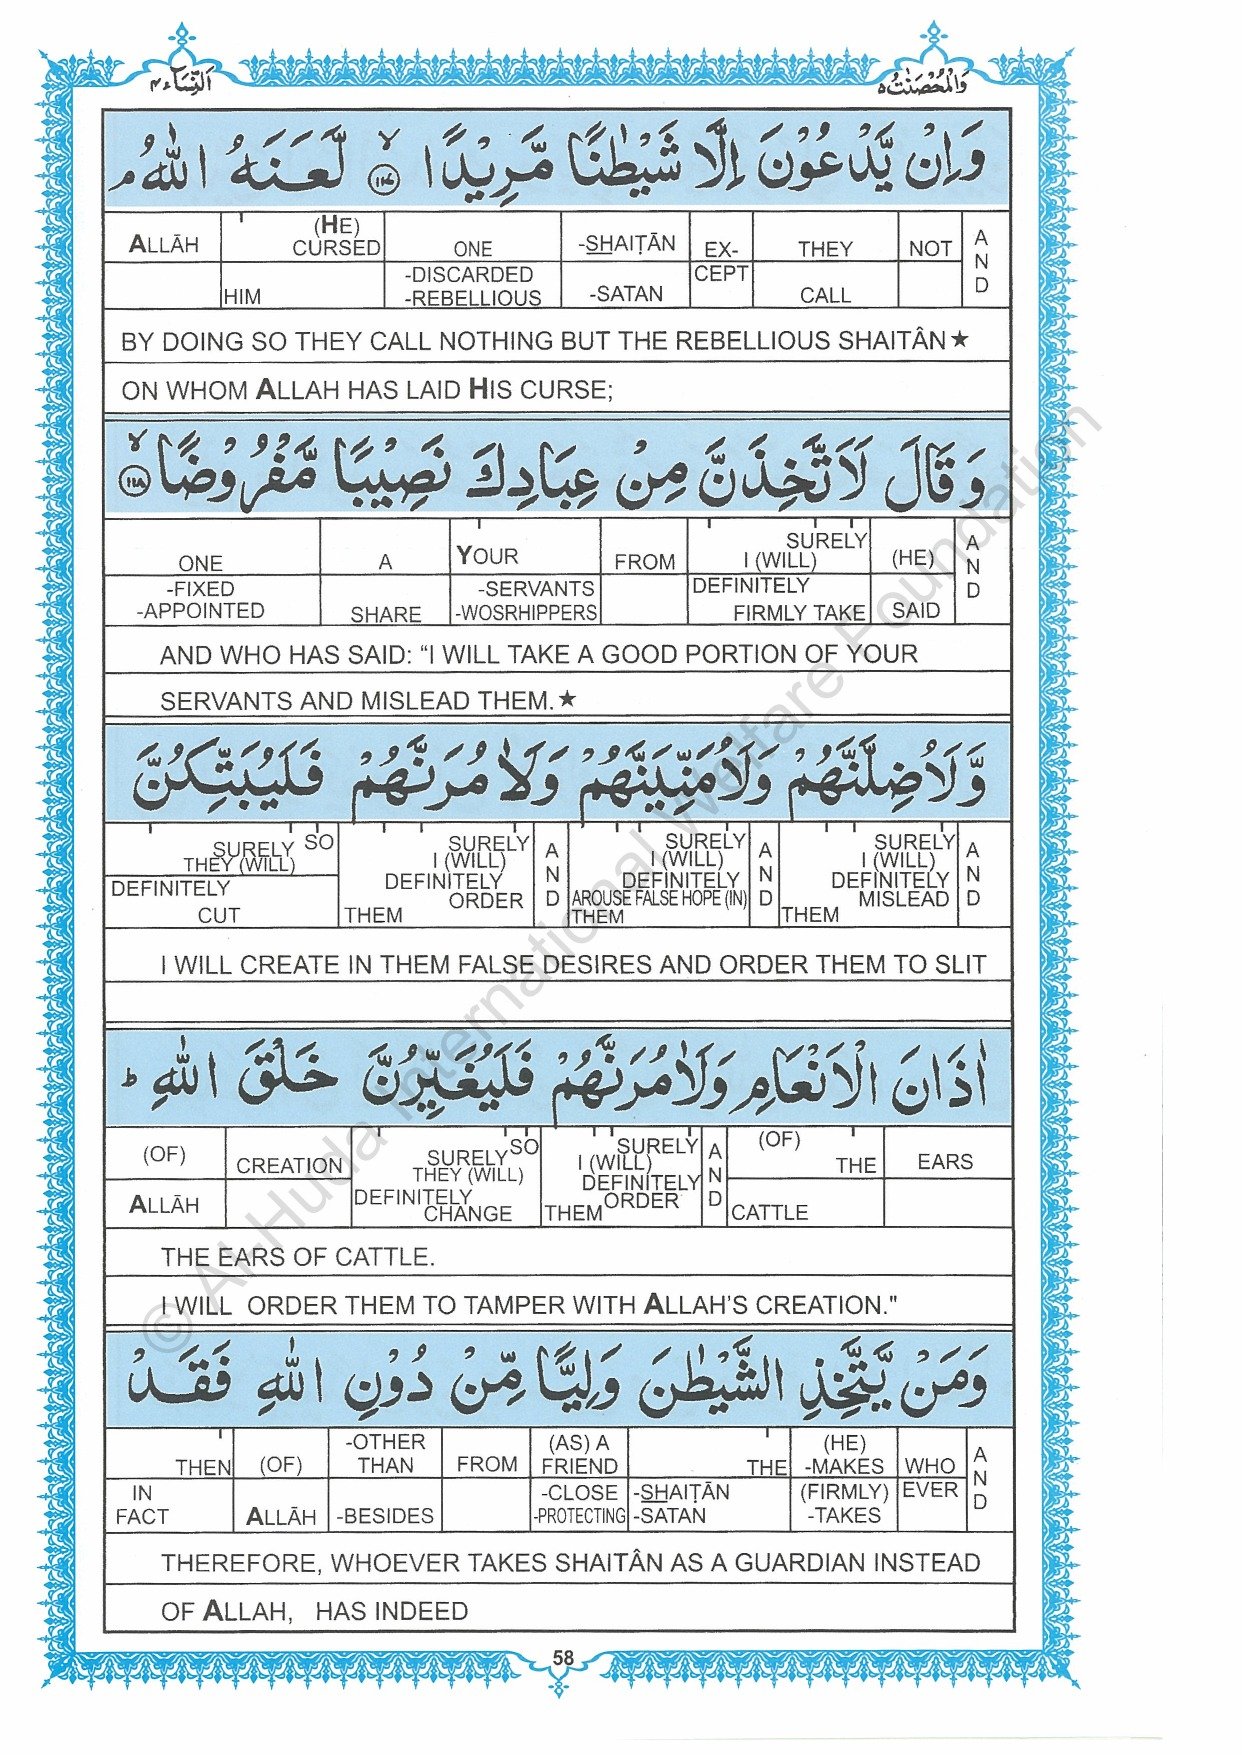 وَالْمُحْصَنٰتُ ٥
اَلنِّسَآء ٤
وَاِنْ يَّدْعُوْنَ اِلَّا شَيْطٰنًا مَّرِيْدًا ۙ لَّعَنَهُ اللّٰهُ ۘ
ALLĀH (HE) CURSED ONE -SHAIṬĀN EX- THEY NOT AND
HIM -DISCARDED -REBELLIOUS -SATAN CEPT CALL
BY DOING SO THEY CALL NOTHING BUT THE REBELLIOUS SHAITÂN★
ON WHOM ALLAH HAS LAID HIS CURSE;
وَقَالَ لَاَتَّخِذَنَّ مِنْ عِبَادِكَ نَصِيْبًا مَّفْرُوْضًا ۙ ١١٨
ONE A YOUR FROM SURELY I (WILL) (HE) AND
-FIXED -APPOINTED SHARE -SERVANTS -WOSRHIPPERS DEFINITELY FIRMLY TAKE SAID
AND WHO HAS SAID: “I WILL TAKE A GOOD PORTION OF YOUR
SERVANTS AND MISLEAD THEM.★
وَّلَاُضِلَّنَّهُمْ وَلَاُمَنِّيَنَّهُمْ وَلَاٰمُرَنَّهُمْ فَلَيُبَتِّكُنَّ
SURELY THEY (WILL) SO SURELY I (WILL) DEFINITELY ORDER AND SURELY I (WILL) DEFINITELY AROUSE FALSE HOPE (IN) AND SURELY I (WILL) DEFINITELY MISLEAD AND
DEFINITELY CUT THEM THEM THEM
I WILL CREATE IN THEM FALSE DESIRES AND ORDER THEM TO SLIT
اٰذَانَ الْاَنْعَامِ وَلَاٰمُرَنَّهُمْ فَلَيُغَيِّرُنَّ خَلْقَ اللّٰهِ ؕ
(OF) CREATION SURELY THEY (WILL) SO SURELY I (WILL) DEFINITELY ORDER AND (OF) THE EARS
ALLĀH DEFINITELY CHANGE THEM CATTLE
THE EARS OF CATTLE.
I WILL ORDER THEM TO TAMPER WITH ALLAH’S CREATION."
وَمَنْ يَّتَّخِذِ الشَّيْطٰنَ وَلِيًّا مِّنْ دُوْنِ اللّٰهِ فَقَدْ
THEN (OF) -OTHER THAN FROM (AS) A FRIEND THE (HE) -MAKES WHO AND
IN FACT ALLĀH -BESIDES -CLOSE -PROTECTING -SHAIṬĀN -SATAN (FIRMLY) -TAKES EVER
THEREFORE, WHOEVER TAKES SHAITÂN AS A GUARDIAN INSTEAD
OF ALLAH, HAS INDEED
58
© Al-Huda International Welfare Foundation